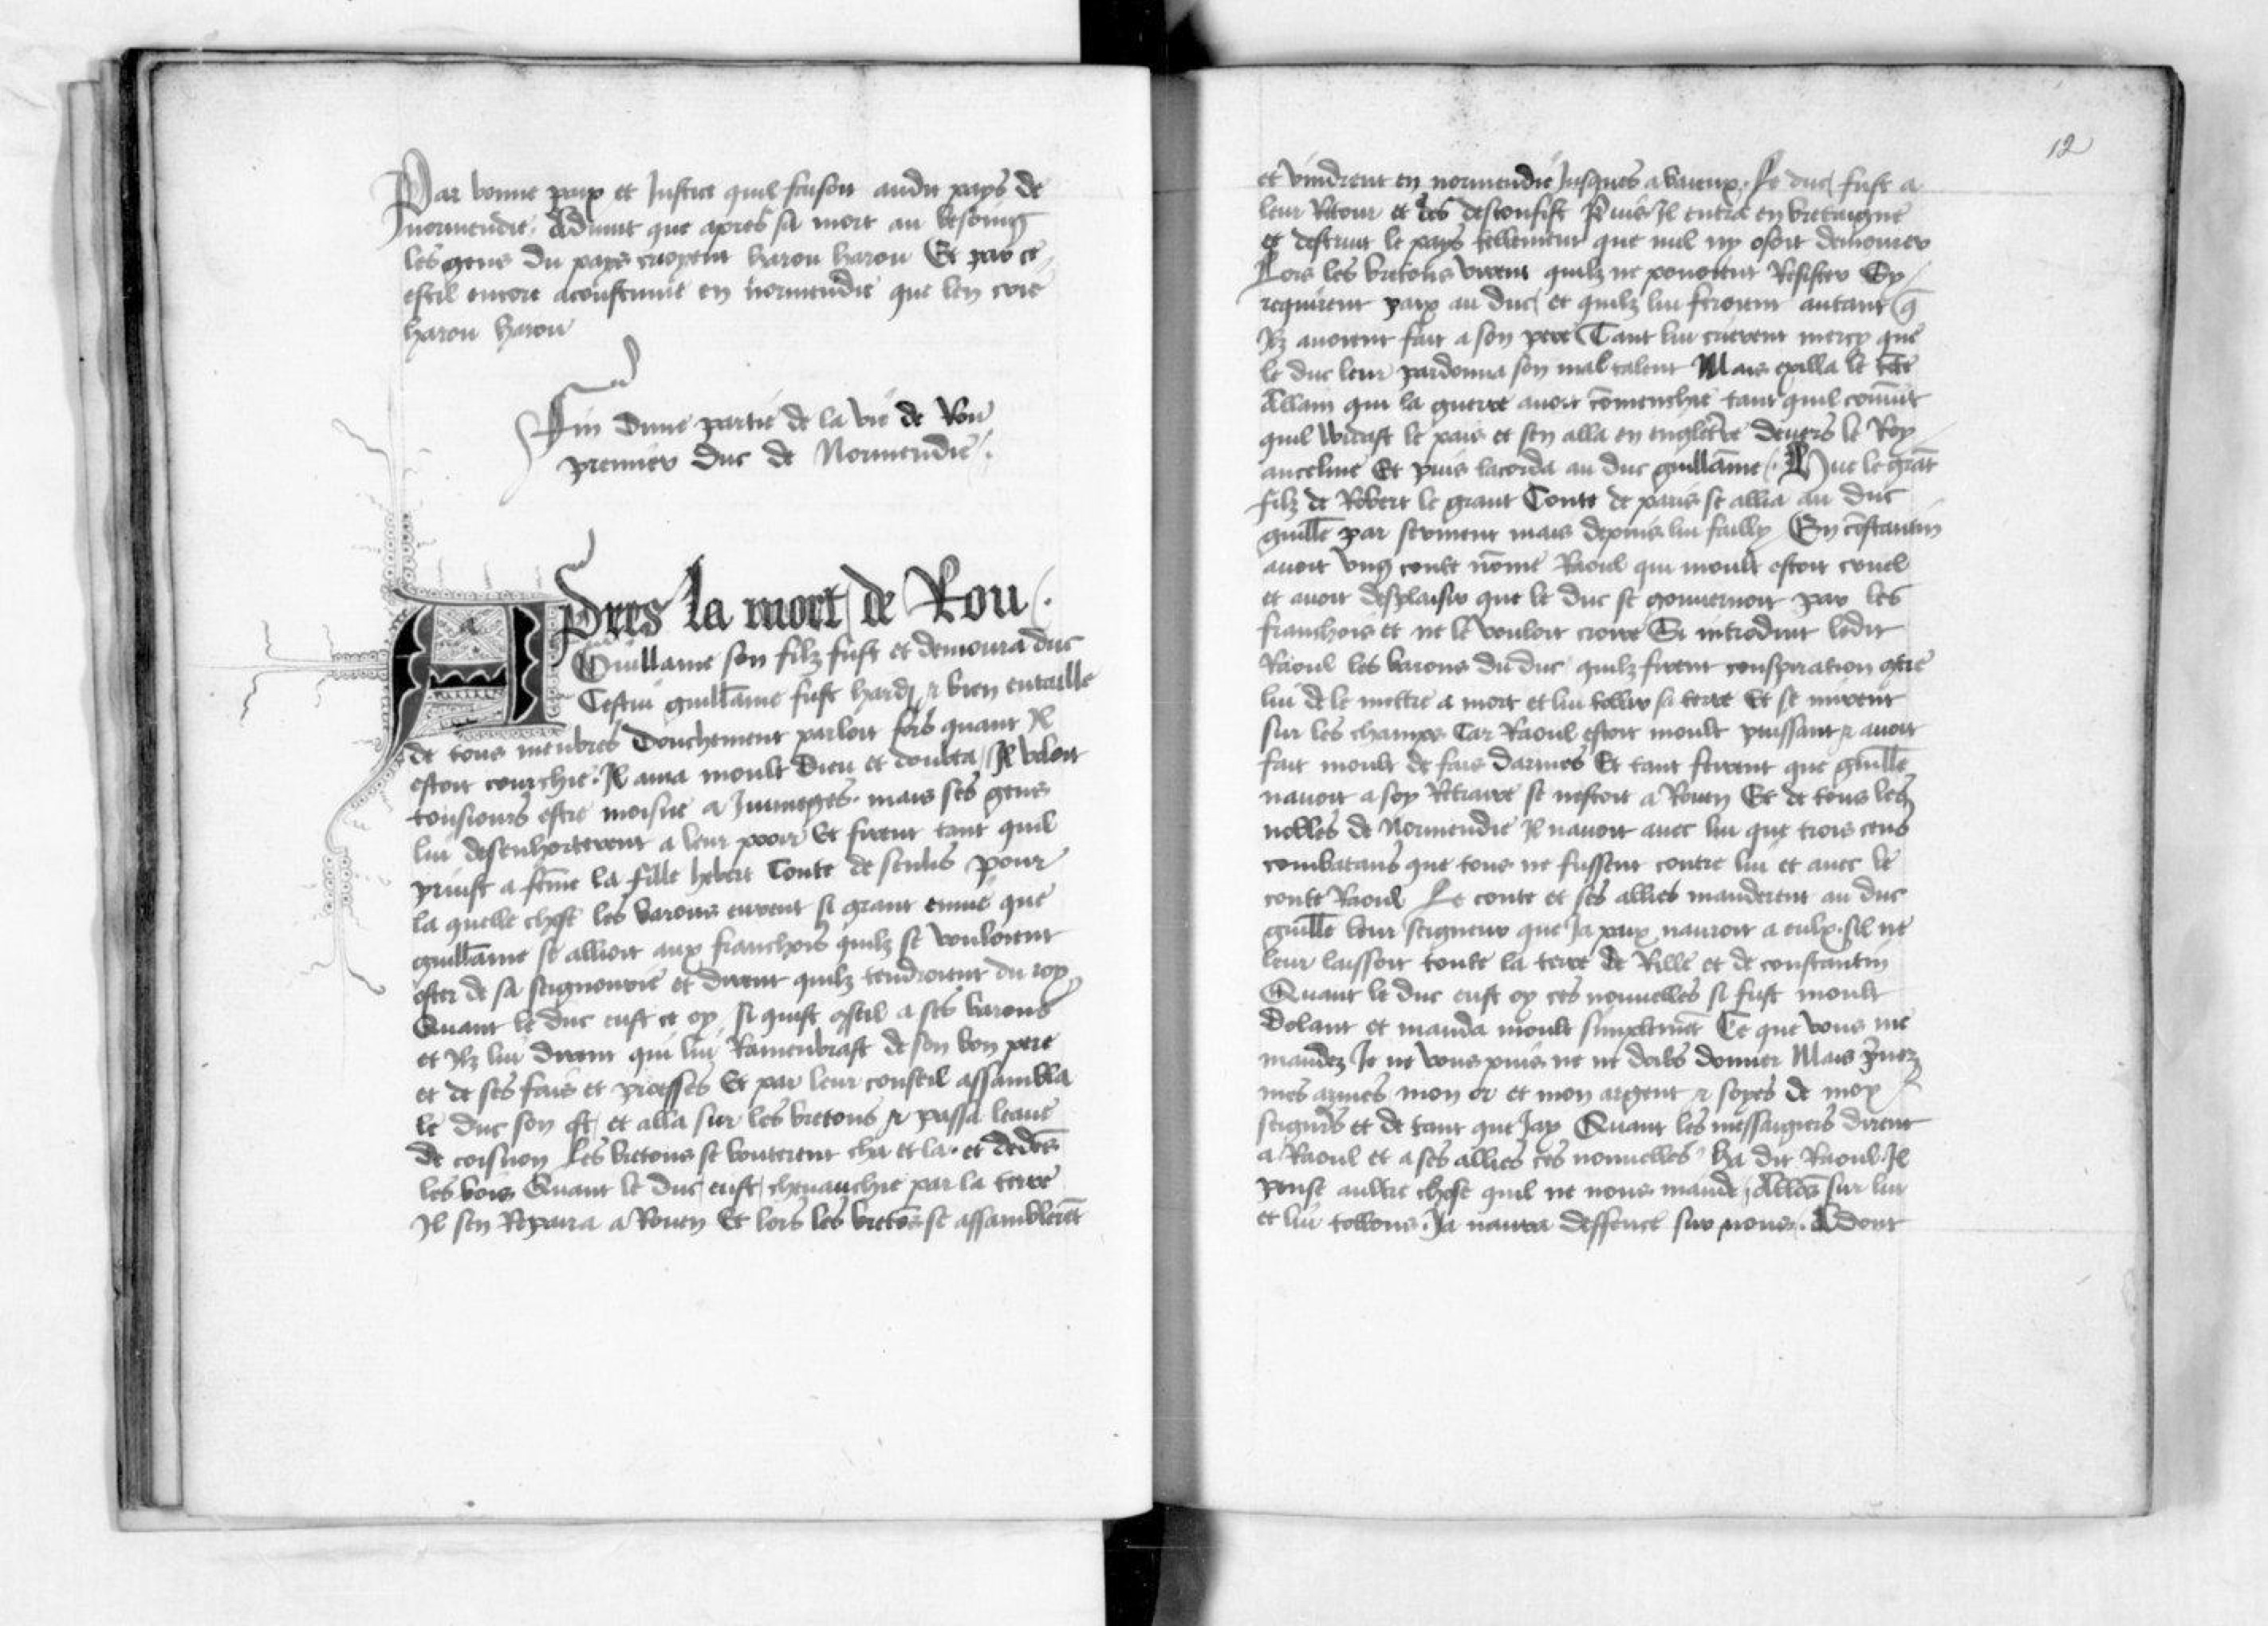 Par bonne paix et Justice quil faisoit audit pays de
normendie. Aduint que apres sa mort au besoing
les gens du pays crioyent harou harou Et par ce
est il encore acoustume en normendie que len crie
harou harou
Fin dune partie de la vie de Rou
premier duc de Normendie
Apres la mort de Rou
Guillame son filz fust et demoura duc
Cestui guillāme fust hardy & bien entaille
de tous menbres Douchement parloit fors quant Il
estoit courchie. Il ama moult Dieu et doubta Il voloit
tousiours estre moisne a Jumeges. mais ses gens
lui desenhorterent a leur pooir Et firent tant quil
prinst a fēme la fille hebert Conte de senlis pour
la quelle chose les barons eurent si grant enuie que
guillāme se allioit aux franchois quilz se vouloient
oster de sa seignourie et dirent quilz tendroient du roy
Quant le duc eust ce oy si quist ostil a ses barons
et Ilz lui dirent qui lui Ramenbrast de son bon pere
et de ses fais et proesses Et par leur conseil assambla
le duc son ost et alla sur les bretons & passa leaue
de coisnon Les bretons se bouterent cha et la. et dedēs
les bois Quant le duc eust cheuauchie par la terre
Il sen Repaira a Rouen Et lors les bretōs se assamblerēt
12
et vindrent en normendie Jusques a baieux. Le duc fust a
leur Retour et les desconfist Puis Il entra en bretaigne
et destruit le pays tellement que nul ny osoit demourer
Lors les bretons virent quilz ne pouoient Resister Sy
requirent paix au duc et quilz lui feroient autant q̄
Ilz auoient fait a son pere Tant lui crierent mercy que
le duc leur pardonna son mal talent Mais exilla le cōte
Allain qui la guerre auoit cōmenchie tant quil conuīt
quil widast le pais et sen alla en engleterre deuers le Roy
anceline Et puis lacorda au duc guillāme. Hue le grāt
filz de Robert le grant Conte de paris se allia au duc
guille par serment mais depuis lui failly En cōstantin
auoit vng conte nōme Raoul qui moult estoit cruel
et auoit desplaisir que le duc se gouuernoit par les
franchois et ne le vouloit croire Si introduit ledit
Raoul les barons du duc quilz firent conspiration ctre
lui de le mettre a mort et lui tollir sa terre Et se mirent
sur les champs Car Raoul estoit moult puissant & auoit
fait moult de fais darmes Et tant firent que guille
nauoit a soy Retraire se nestoit a Rouen Et de tous les
nobles de Normendie Il nauoit auec lui que trois cens
combatans que tous ne fussent contre lui et auec le
conte Raoul Le conte et ses allies manderent au duc
guille leur seigneur que Ja paix nauroit a eulx. sil ne
leur laissoit toute la terre de Rille et de constantin
Quant le duc eust oy ces nouuelles si fust moult
dolant et manda moult simplemēt Ce que vous me
mandez Je ne vous puis ne ne doibs donner Mais prenez
mes armes mon or et mon argent & soyes de moy
seigneurs et de tant que Jay Quant les messaigiers dirent
a Raoul et a ses allies ces nouuelles ha dit Raoul Il
pense aultre chose quil ne nous mande. Allōs sur lui
et lui tollons. Ja naura deffence sur nous. Adont